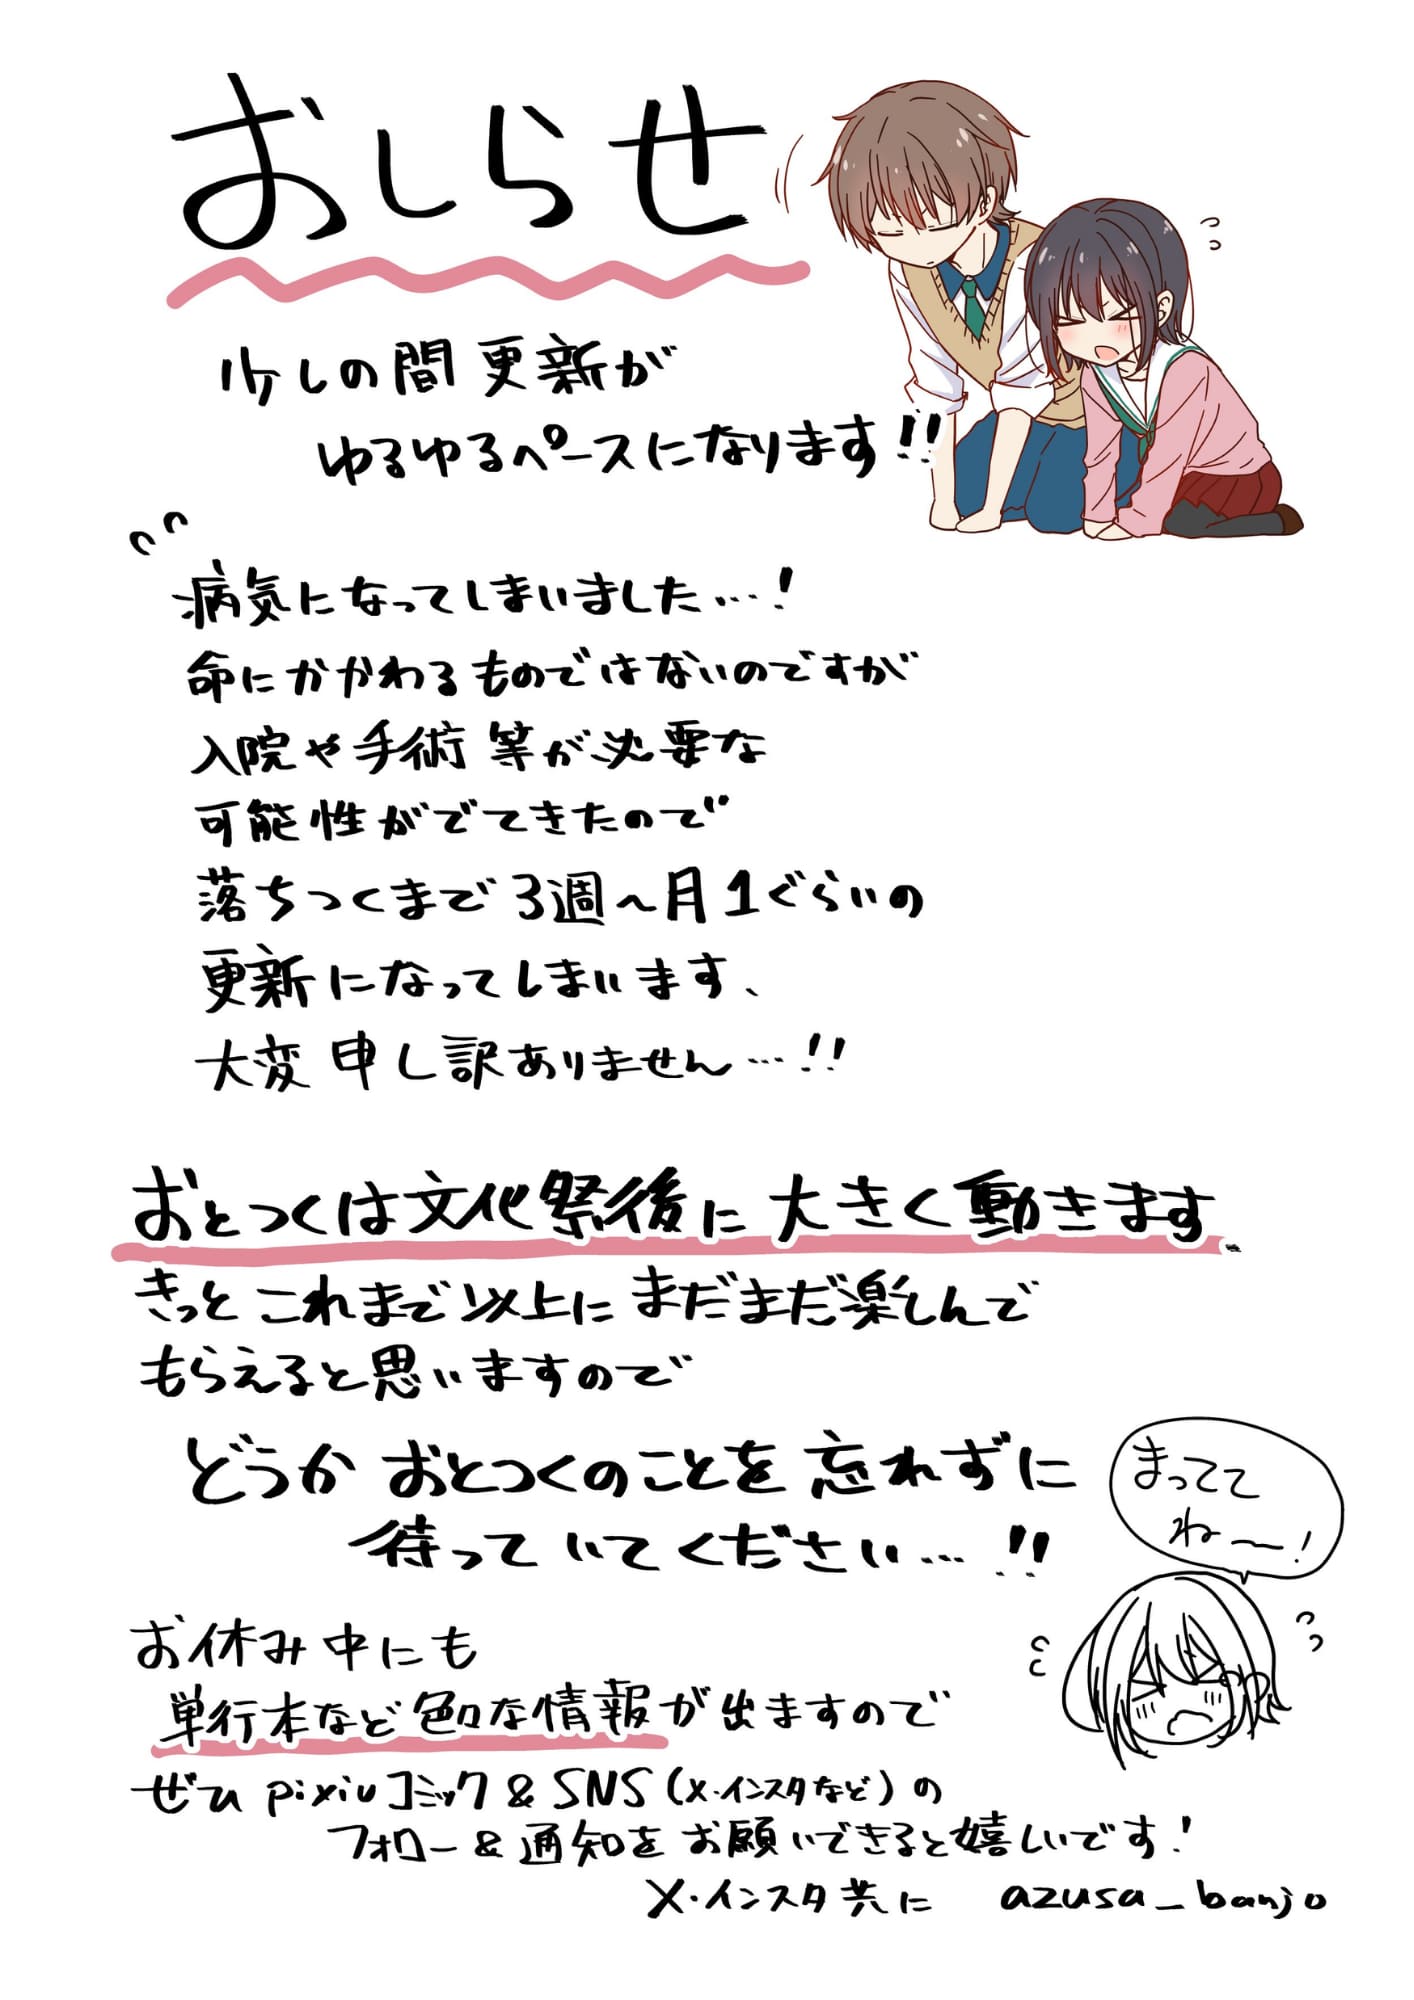 おしらせ
少しの間更新が
ゆるゆるペースになります!!
病気になってしまいました…!
命にかかわるものではないのですが
入院や手術等が必要な
可能性がでてきたので
落ちつくまで3週〜月1ぐらいの
更新になってしまいます、
大変申し訳ありません…!!
おとつくは文化祭後に大きく動きます、
きっとこれまで以上にまだまだ楽しんで
もらえると思いますので
どうかおとつくのことを忘れずに
待っていてください…!!
まってて
ね〜!
お休み中にも
単行本など色々な情報が出ますので
ぜひpixivコミック&SNS(X・インスタなど)の
フォロー&通知をお願いできると嬉しいです!
X・インスタ共に azusa_banjo